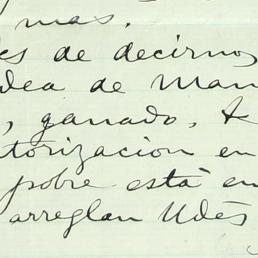 mas.
es de decirnos
dea de Man
, ganado, &
torizacion en
pobre está en
arreglan Udès